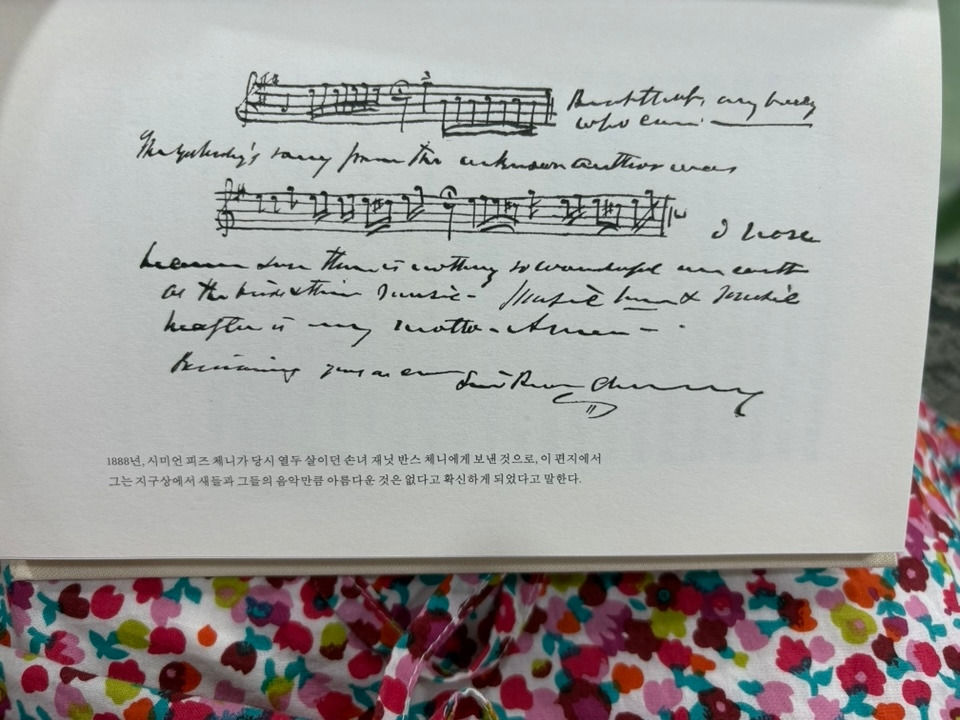 But that's anybody
who can.
The yesterday's song from the unknown author was
I have
become sure there is nothing so wonderful on earth
as the birds & their music - Music here & music
hereafter is my motto - Amen -
Remaining yours as ever
1888년, 시미언 피즈 체니가 당시 열두 살이던 손녀 재닛 반스 체니에게 보낸 것으로, 이 편지에서
그는 지구상에서 새들과 그들의 음악만큼 아름다운 것은 없다고 확신하게 되었다고 말한다.